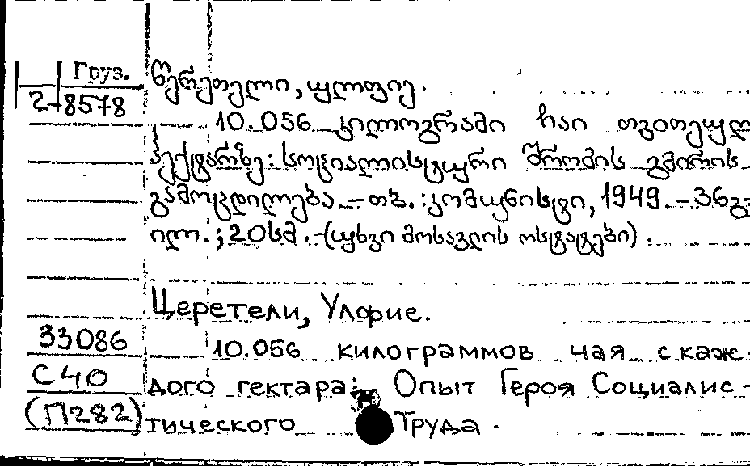 Груз.
2-8578
წერეთელი, ულფიე.
10.056 კილოგრამი ჩაი თვითეულ
ჰექტარზე: სოციალისტური შრომის გმირის
გამოცდილება. – თბ.: კომუნისტი, 1949. – 36გვ
ილ.; 20სმ. – (უხვი მოსავლის ოსტატები).
Церетели, Улфие.
10.056 килограммов чая с каж-
дого гектара: Опыт Героя Социалис-
тического Труда.
33086
С40
(П282)